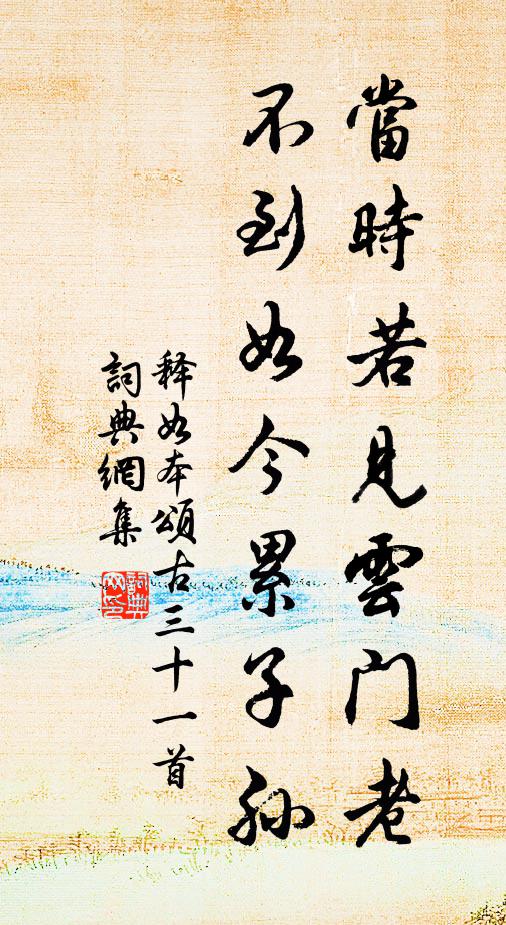 當時若見雲門老
不到如今累子孙
释如本頌古三十一首
詞典網集
詞典网印